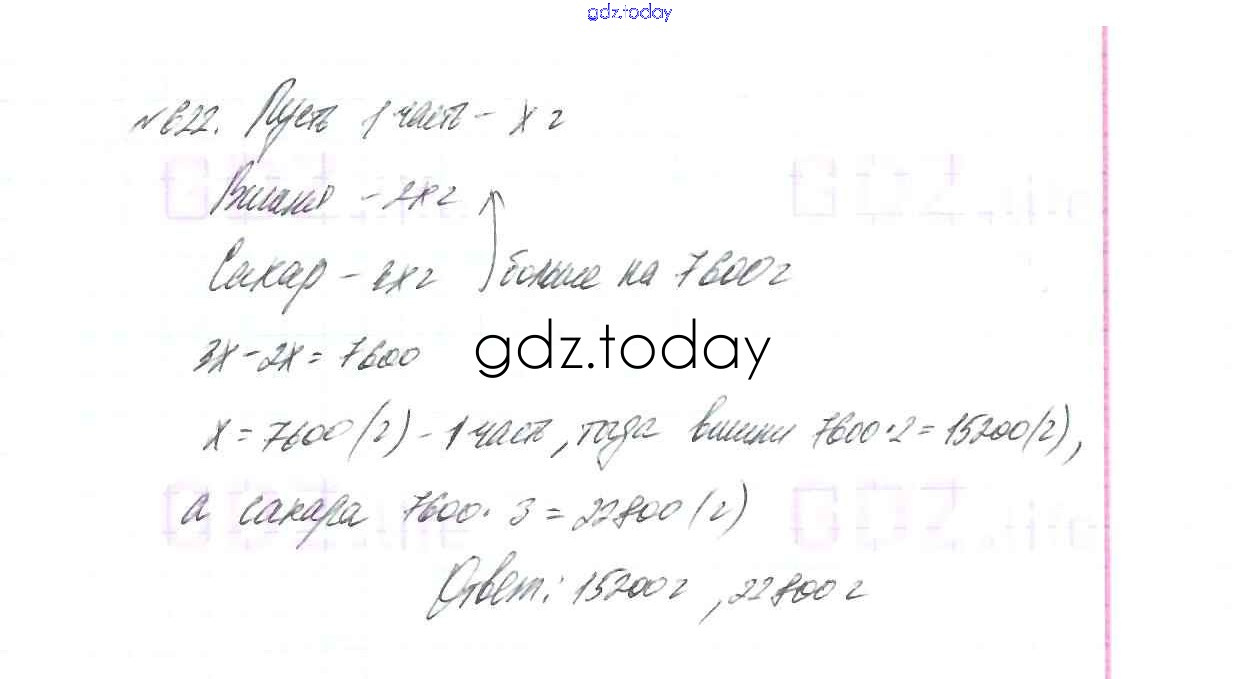 gdz.today
№622. Пусть 1 часть - х г
Вишня - 2х г
Сахар - 3х г больше на 7600 г
3х - 2х = 7600
gdz.today
х = 7600 (г) - 1 часть, тогда вишни 7600·2 = 15200 (г),
а сахара 7600·3 = 22800 (г)
Ответ: 15200 г, 22800 г